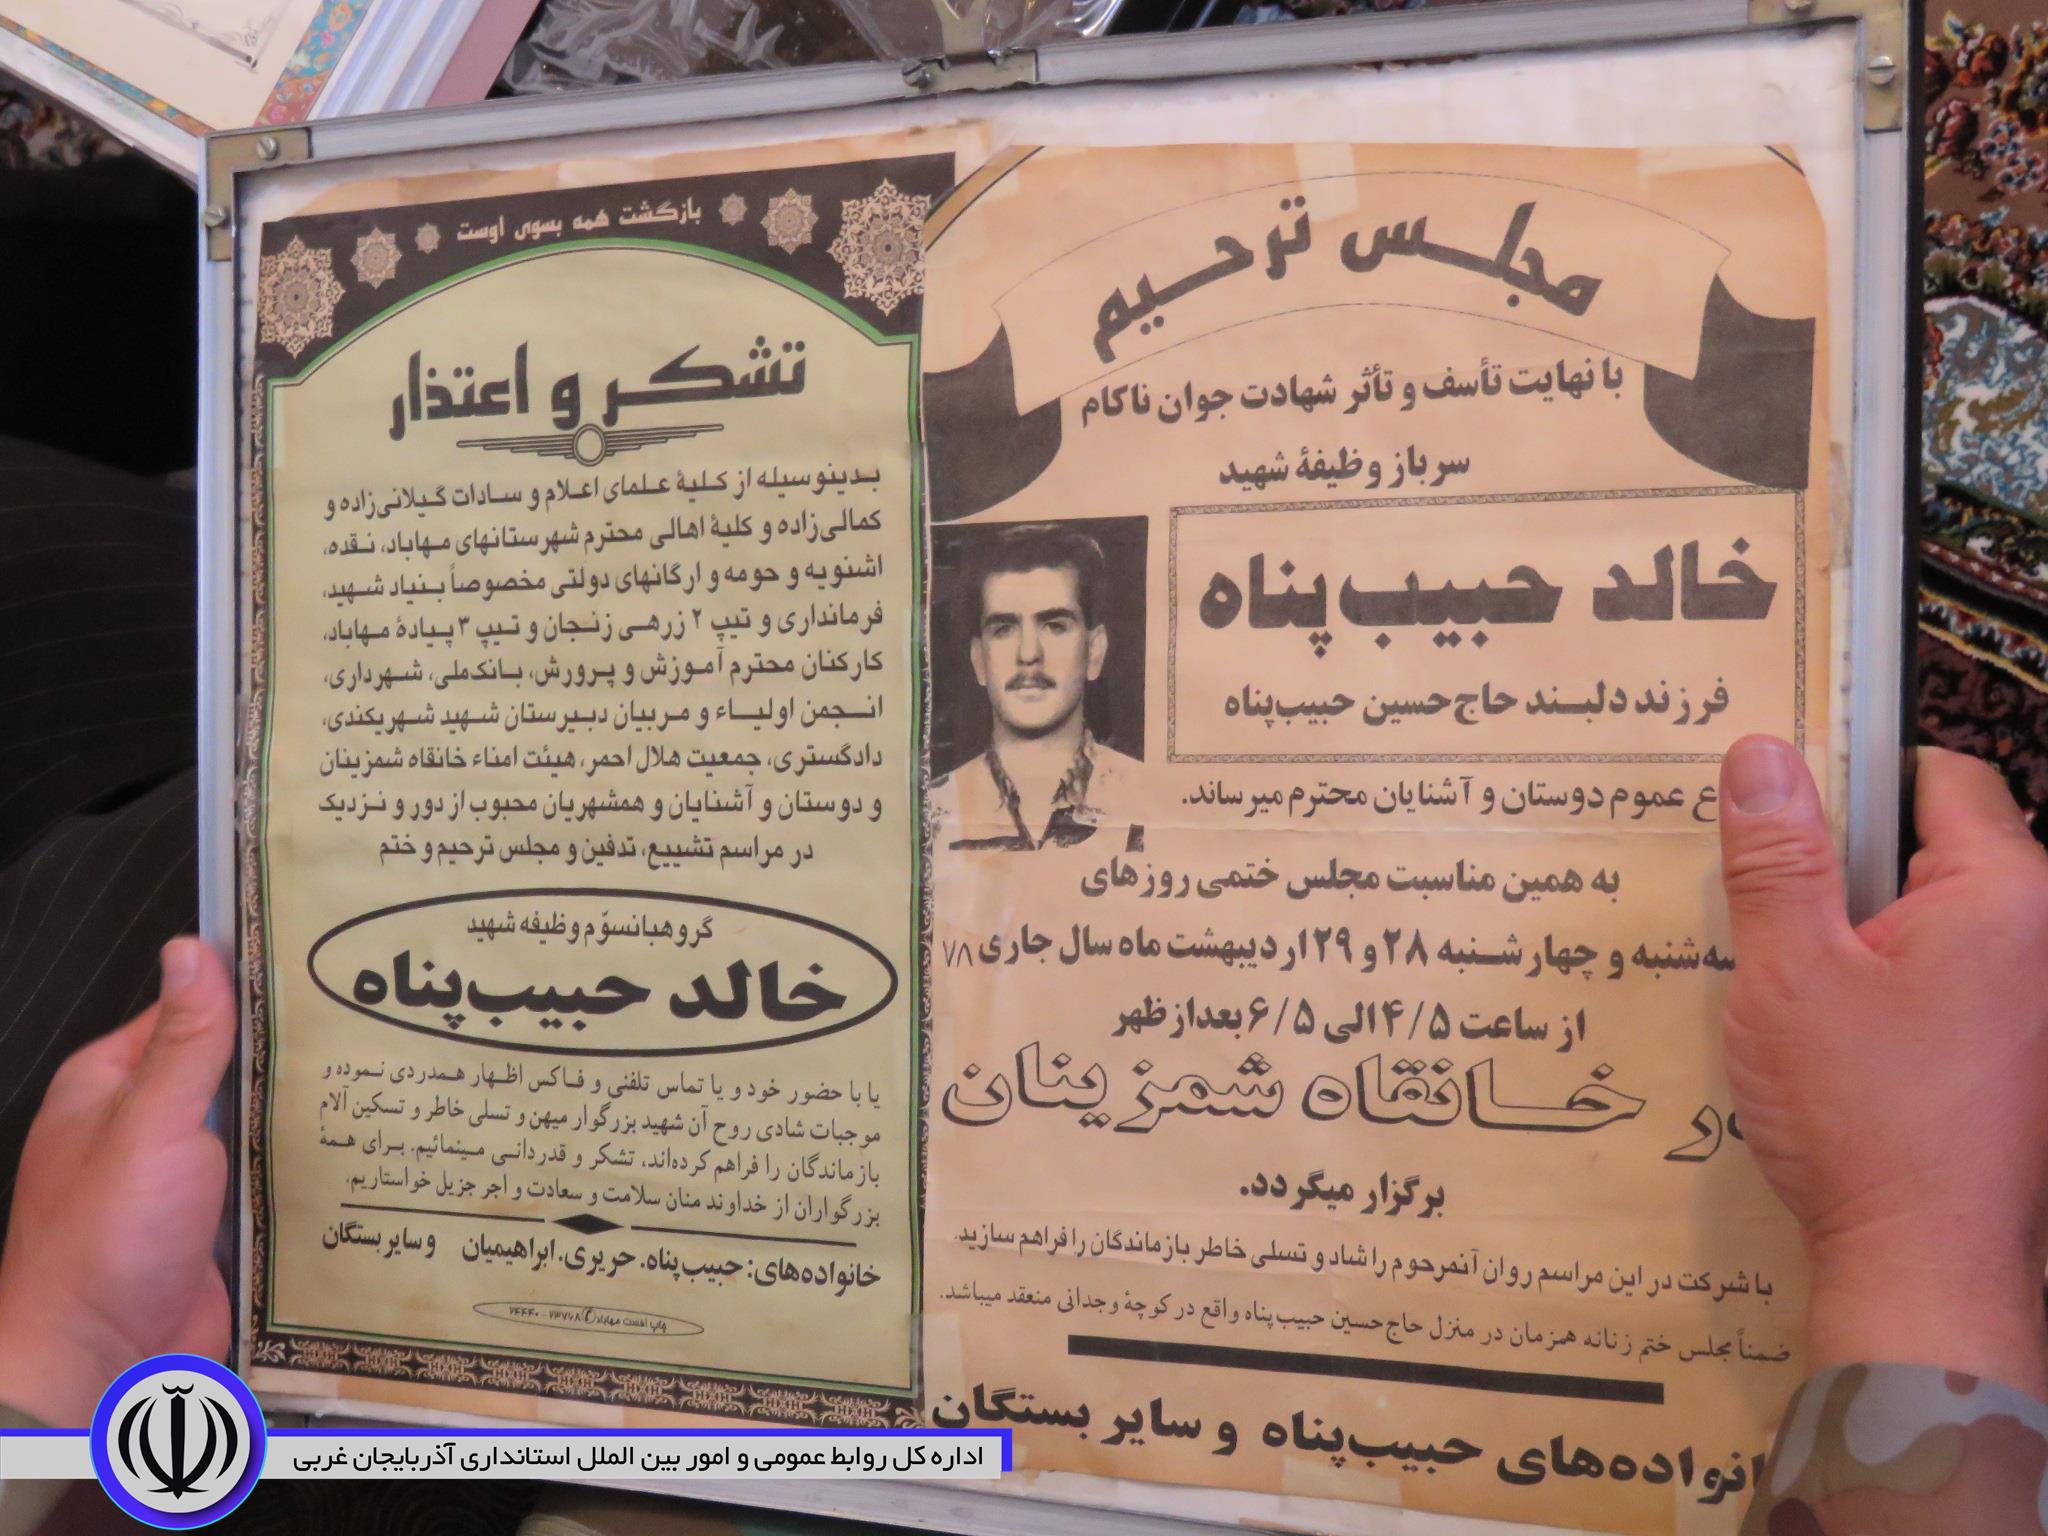 مجلس ترحیم
با نهایت تأسف و تأثر شهادت جوان ناکام
سرباز وظیفهٔ شهید
خالد حبیب‌پناه
فرزند دلبند حاج حسین حبیب‌پناه
ع عموم دوستان و آشنایان محترم میرساند.
به همین مناسبت مجلس ختمی روزهای
سه‌شنبه و چهارشنبه ۲۸ و ۲۹ اردیبهشت ماه سال جاری ۷۸
از ساعت ۴/۵ الی ۶/۵ بعدازظهر
در خانقاه شمزینان
برگزار میگردد.
با شرکت در این مراسم روان آنمرحوم را شاد و تسلی خاطر بازماندگان را فراهم سازید.
ضمناً مجلس ختم زنانه همزمان در منزل حاج حسین حبیب‌پناه واقع در کوچهٔ وجدانی منعقد میباشد.
انواده‌های حبیب‌پناه و سایر بستگان
بازگشت همه بسوی اوست
تشکر و اعتذار
بدینوسیله از کلیهٔ علمای اعلام و سادات گیلانی‌زاده و
کمالی‌زاده و کلیهٔ اهالی محترم شهرستانهای مهاباد، نقده،
اشنویه و حومه و ارگانهای دولتی مخصوصاً بنیاد شهید،
فرمانداری و تیپ ۲ زرهی زنجان و تیپ ۳ پیادهٔ مهاباد،
کارکنان محترم آموزش و پرورش، بانک ملی، شهرداری،
انجمن اولیاء و مربیان دبیرستان شهید شهریکندی،
دادگستری، جمعیت هلال احمر، هیئت امناء خانقاه شمزینان
و دوستان و آشنایان و همشهریان محبوب از دور و نزدیک
در مراسم تشییع، تدفین و مجلس ترحیم و ختم
گروهبانسوّم وظیفه شهید
خالد حبیب‌پناه
یا با حضور خود و یا تماس تلفنی و فاکس اظهار همدردی نموده و
موجبات شادی روح آن شهید بزرگوار میهن و تسلی خاطر و تسکین آلام
بازماندگان را فراهم کرده‌اند، تشکر و قدردانی مینمائیم. برای همهٔ
بزرگواران از خداوند منان سلامت و سعادت و اجر جزیل خواستاریم.
خانواده‌های: حبیب‌پناه. حریری. ابراهیمیان و سایر بستگان
چاپ افست مهاباد
اداره کل روابط عمومی و امور بین الملل استانداری آذربایجان غربی